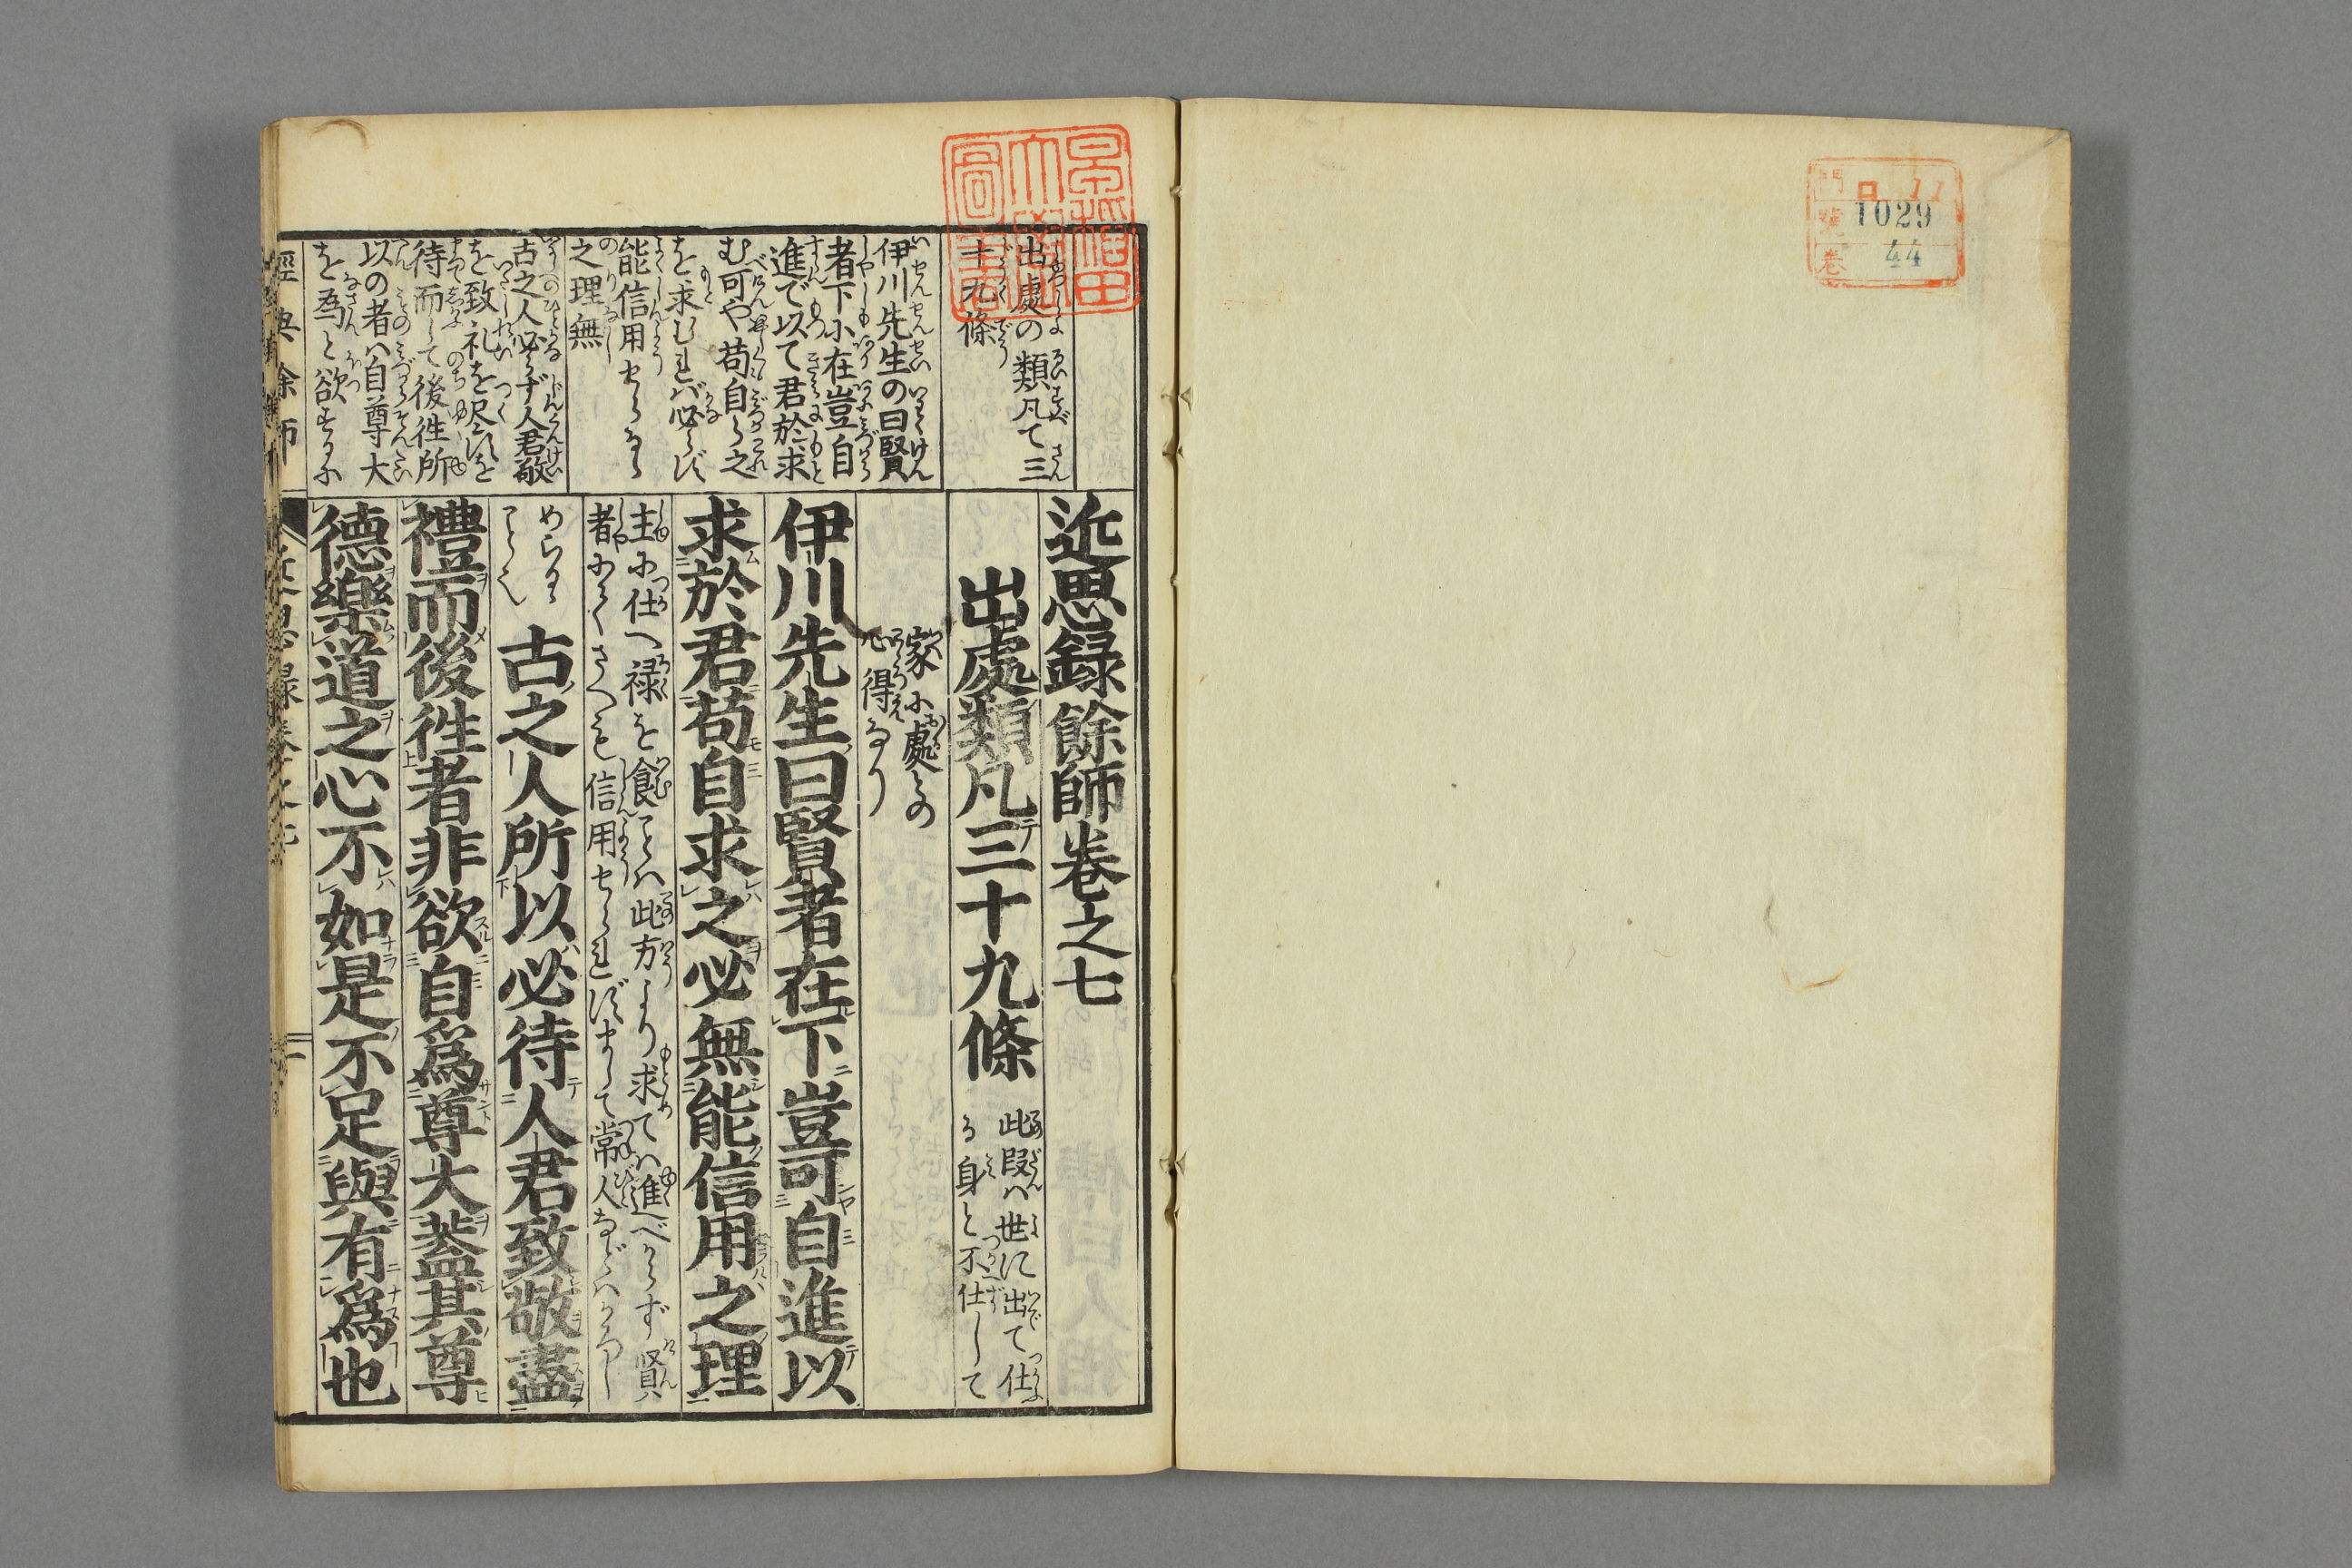 門 ロ 11
號 1029
卷 44
早稲田
大學
圖書
出處の類凡て三
十九條
伊川先生の曰賢
者下に在豈自
進で以て君於求
む可や苟自ら之
を求むれバ必らず
能信用せらるゝ
之理無
古之人必らず人君敬
を致礼を尽すを
待而して後徃所
以の者ハ自尊大
を為と欲するに
近思録餘師巻之七
出處類凡三十九條
此段ハ世に出て仕
る身と不仕して
家に處るの
心得なり
伊川先生曰賢者在下豈可自進以
求於君苟自求之必無能信用之理
主に仕へ禄を食ことハ此方より求てハ進べからず賢
者にてさへも信用せられずまして常人などハかろし
めらるゝ
ことぞ
古之人所以必待人君致敬盡
禮而後徃者非欲自爲尊大蓋其尊
德樂道之心不如是不足與有爲也
經典餘師
近思録巻之七
一